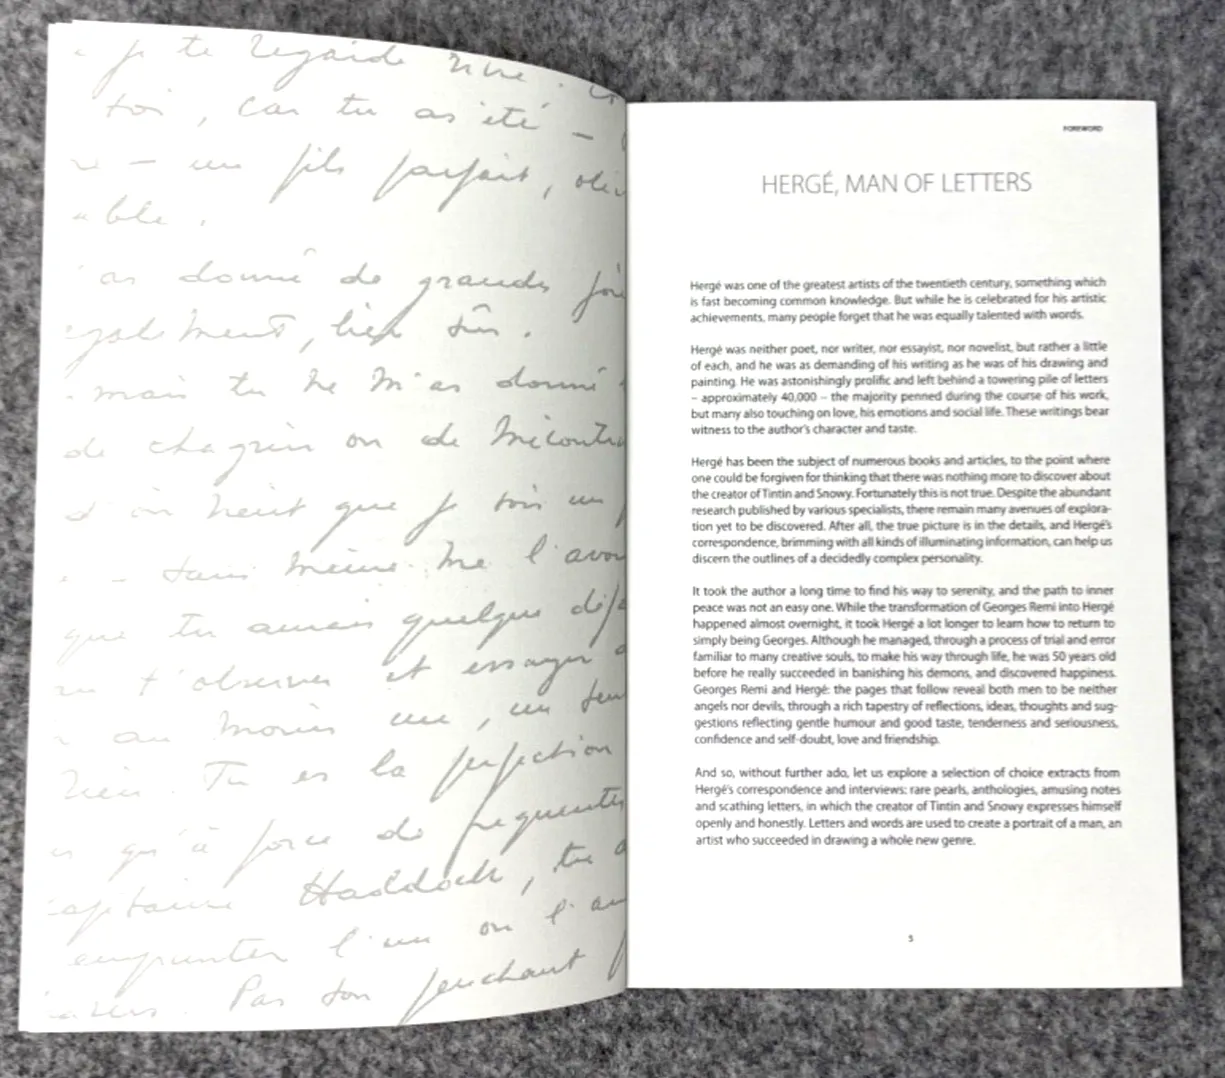 je te regarde vivre.
toi, car tu as été –
– un fils parfait,
able.
as donné de grandes
également, bien sûr.
mais tu ne m'as donné
de chagrin ou de
que je sois un
sans même me l'avo
que tu aurais quelque
t'observer et essayer
au moins un, un seul
rien. Tu es la perfection
qu'à force de
capitaine Haddock, tu
emprunter l'un ou l'au
Pas son penchant
FOREWORD
HERGÉ, MAN OF LETTERS
Hergé was one of the greatest artists of the twentieth century, something which
is fast becoming common knowledge. But while he is celebrated for his artistic
achievements, many people forget that he was equally talented with words.
Hergé was neither poet, nor writer, nor essayist, nor novelist, but rather a little
of each, and he was as demanding of his writing as he was of his drawing and
painting. He was astonishingly prolific and left behind a towering pile of letters
– approximately 40,000 – the majority penned during the course of his work,
but many also touching on love, his emotions and social life. These writings bear
witness to the author's character and taste.
Hergé has been the subject of numerous books and articles, to the point where
one could be forgiven for thinking that there was nothing more to discover about
the creator of Tintin and Snowy. Fortunately this is not true. Despite the abundant
research published by various specialists, there remain many avenues of explora-
tion yet to be discovered. After all, the true picture is in the details, and Hergé's
correspondence, brimming with all kinds of illuminating information, can help us
discern the outlines of a decidedly complex personality.
It took the author a long time to find his way to serenity, and the path to inner
peace was not an easy one. While the transformation of Georges Remi into Hergé
happened almost overnight, it took Hergé a lot longer to learn how to return to
simply being Georges. Although he managed, through a process of trial and error
familiar to many creative souls, to make his way through life, he was 50 years old
before he really succeeded in banishing his demons, and discovered happiness.
Georges Remi and Hergé: the pages that follow reveal both men to be neither
angels nor devils, through a rich tapestry of reflections, ideas, thoughts and sug-
gestions reflecting gentle humour and good taste, tenderness and seriousness,
confidence and self-doubt, love and friendship.
And so, without further ado, let us explore a selection of choice extracts from
Hergé's correspondence and interviews: rare pearls, anthologies, amusing notes
and scathing letters, in which the creator of Tintin and Snowy expresses himself
openly and honestly. Letters and words are used to create a portrait of a man, an
artist who succeeded in drawing a whole new genre.
5